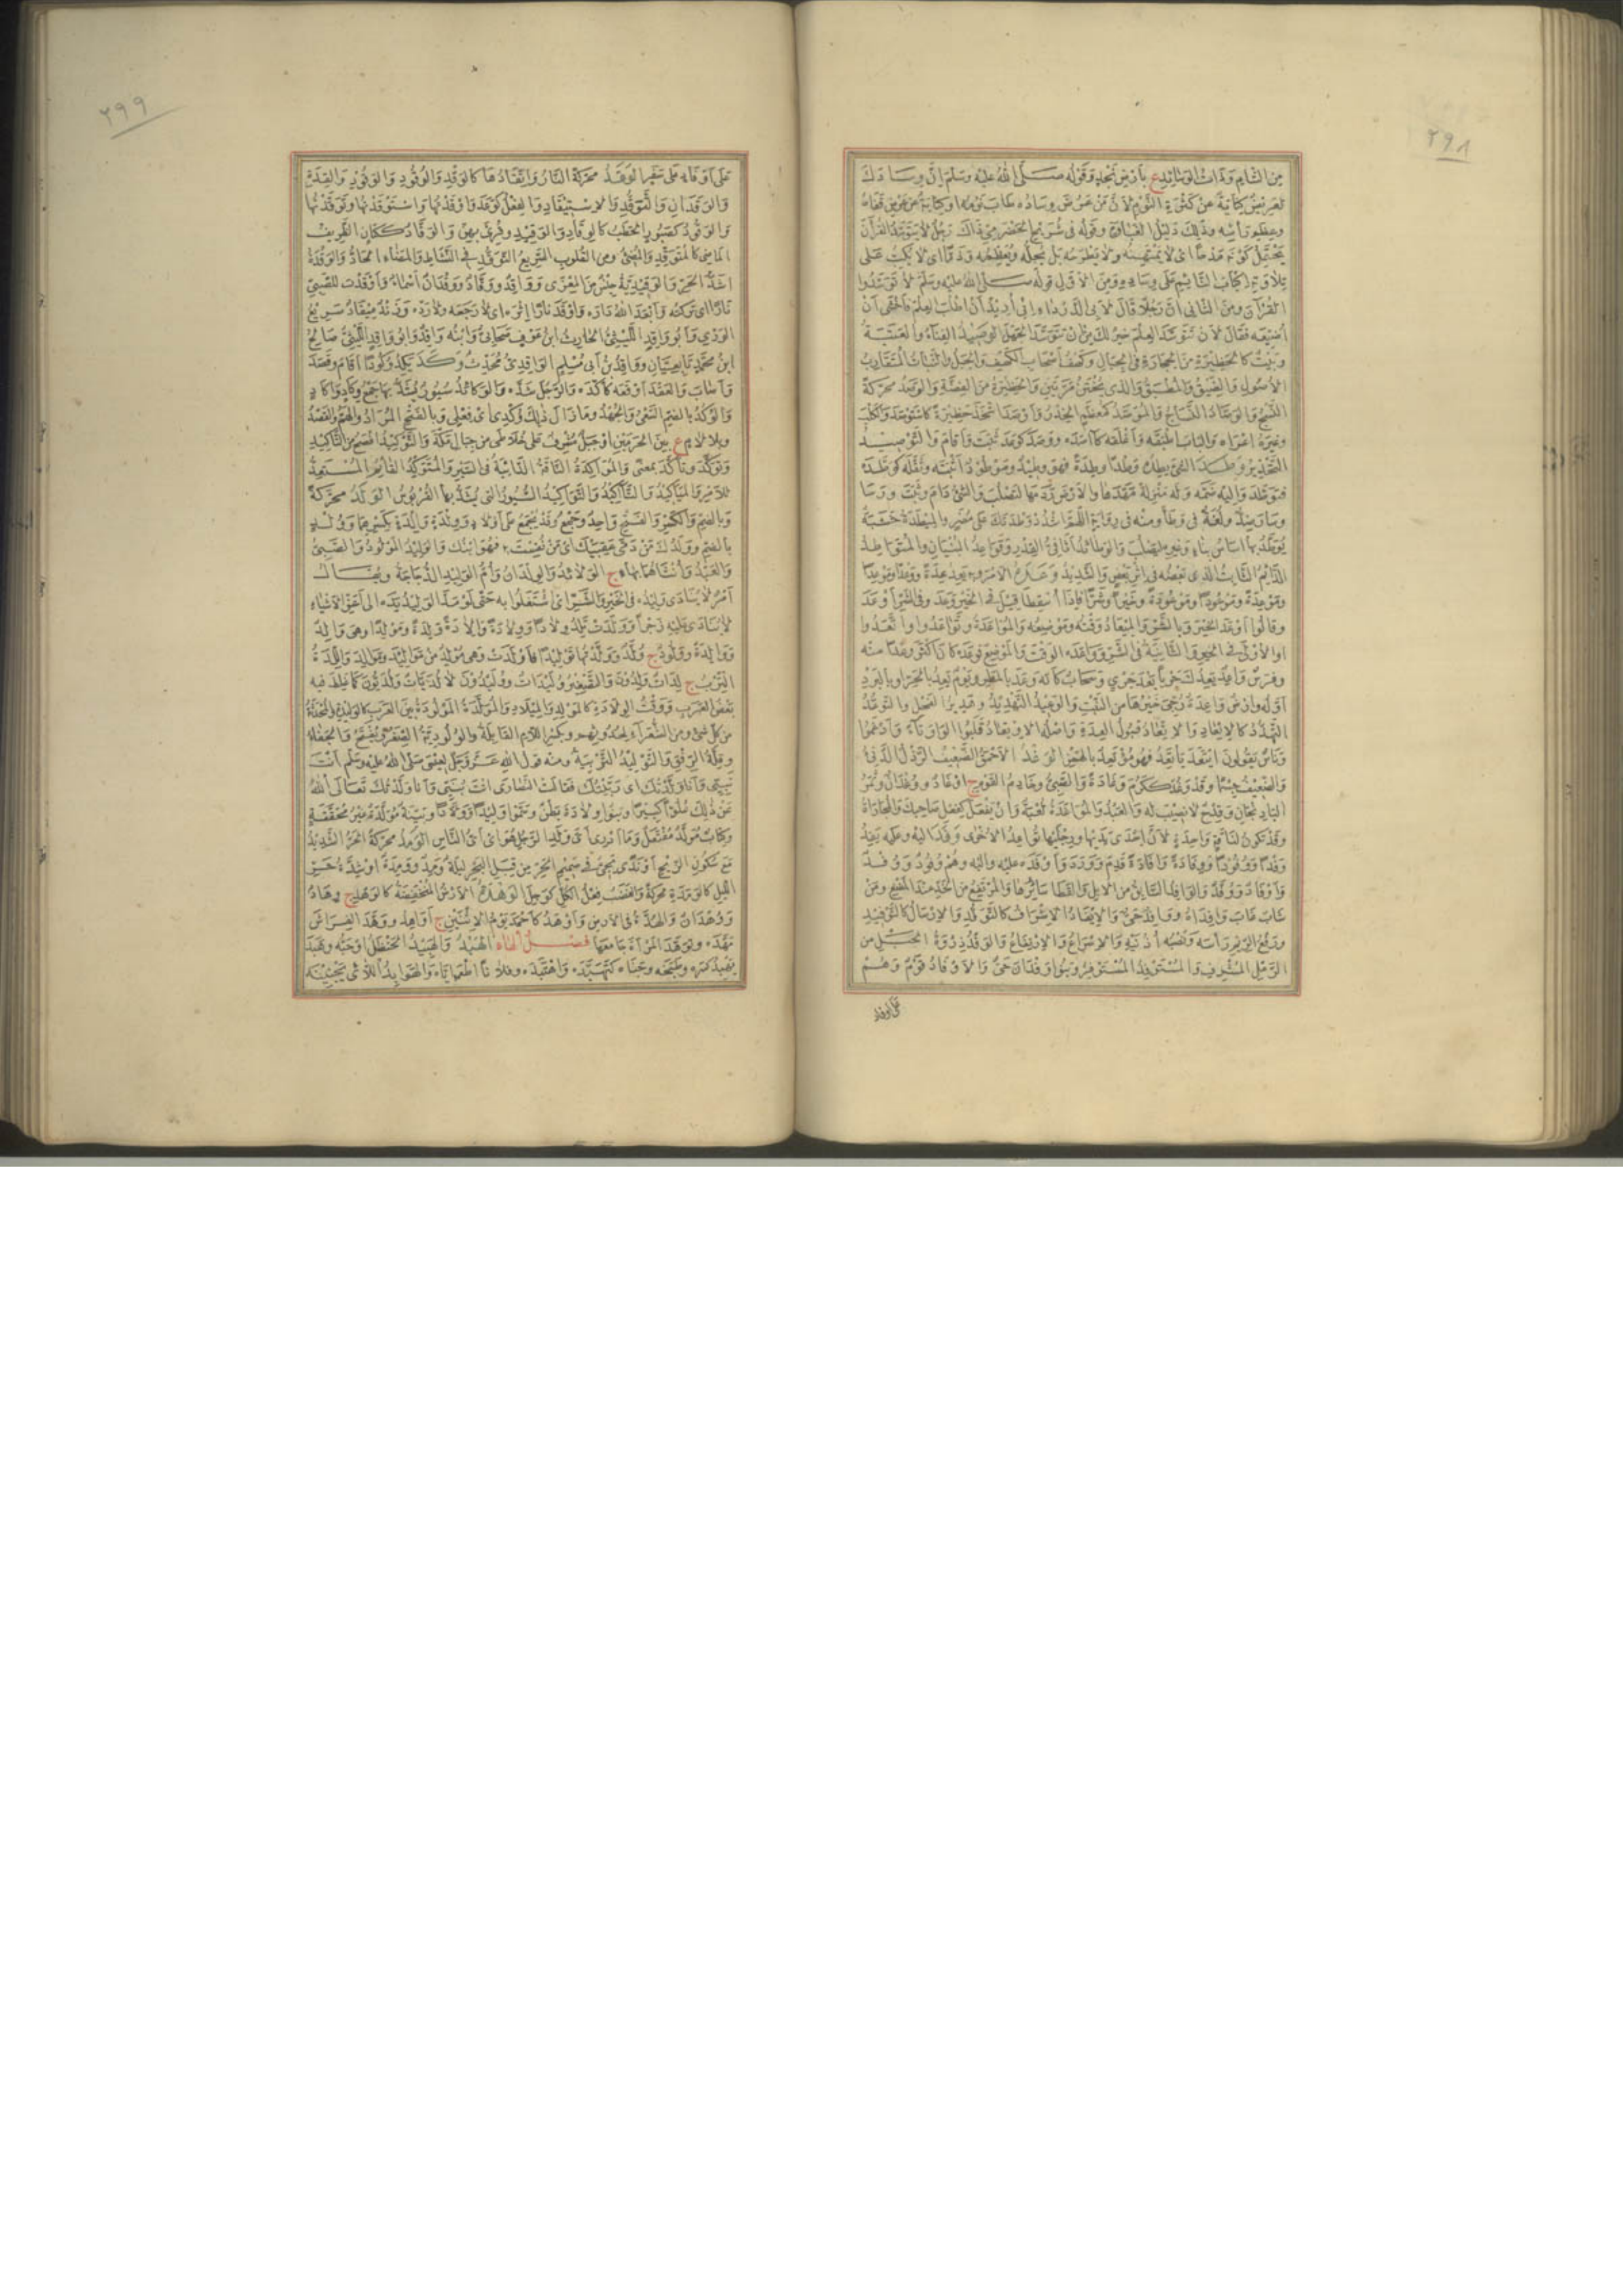 ٢٩٨
مِنَ الشَّامِ وَذَاتُ الوَسَائِدِ ع بأرْضِ نَجْدٍ وَقَوْلُه صَلَّى اللهُ عَلَيْهِ وَسَلَّمَ إنَّ وِسَادَكَ
لَعَرِيضٌ كِنَايَةٌ عَنْ كَثْرَةِ النَّوْمِ لأَنَّ مَنْ عَرَّضَ وِسَادَه طَابَ نَوْمُه أو كِنَايَةٌ عَنْ عِرَضِ قَفَاهُ
وعِظَمِ رَأسِه وذلِكَ دَلِيلُ الغَبَاوَةِ وقَولُه فى شُرَيْحٍ الحَضْرَمِيِّ ذَاكَ رَجُلٌ لا يَتَوَسَّدُ القُرْآنَ
يَحْتَمِلُ كَوْنَه مَدْحًا أى لا يَمْتَهِنُه ولا يَطْرَحُه بَلْ يُجِلُّه ويُعَظِّمُه وذَمًّا أى لا يُكِبُّ عَلَى
تِلاَوَتِه إكْبَابَ النَّائِمِ عَلَى وِسَادِه ومِنَ الأَوَّلِ قَولُه صَلَّى اللهُ عَلَيْهِ وَسَلَّمَ لا تَوَسَّدُوا
القُرْآنَ ومِنَ الثَّانِى أنَّ رَجُلاً قَالَ لأَبِى الدَّرْدَاءِ إنِّى أُرِيدُ أنْ أطْلُبَ العِلْمَ فَأَخْشَى أنْ
أُضَيِّعَه فَقَالَ لأَنْ تَتَوَسَّدَ العِلْمَ خَيْرٌ لَكَ مِنْ أنْ تَتَوَسَّدَ الجَهْلَ الوَصِيدُ الفِنَاءُ والعَتَبَةُ
وبَيْتٌ كالحَظِيرَةِ مِنَ الحِجَارَةِ فى الجِبَالِ وكَهْفُ أصْحَابِ الكَهْفِ والجَبَلُ والنَّبَاتُ المُتَقَارِبُ
الأُصُولِ والضَّيِّقُ والمُطْبَقُ والَّذى يُخْتَنُ مَرَّتَيْنِ والحَظِيرَةُ مِنَ الغِصَنَةِ والوَصَدُ مُحَرَّكَةً
النَّسْجُ والوَصَّادُ النَّسَّاجُ والمُوَصَّدُ كمُعَظَّمٍ الخِدْرُ وأَوْصَدَ اتَّخَذَ حَظِيرَةً كاسْتَوْصَدَ والكَلْبَ
وغَيْرَه أغْرَاه والبَابَ أطْبَقَه وأغْلَقَه كآصَدَه ووَصَدَ كوَعَدَ ثَبَتَ وأقَامَ والتَّوْصِيدُ
التَّحْذِيرُ وَطَدَ الشَّىءَ يَطِدُه وَطْدًا وطِدَةً فَهُوَ وَطِيدٌ ومَوْطُودٌ أثْبَتَه وثَقَّلَه كوَطَّدَه
فَتَوَطَّدَ وإلَيْه ضَمَّه ولَه مَنْزِلَةً مَهَّدَها والأَرْضَ رَدَمَها لِتَصْلُبَ والشَّىءُ دَامَ وثَبَتَ ورَسَا
وسَارَ ضِدٌّ ولُغَةٌ فى وَطِئَ ومنه فى رِوَايَةٍ اللَّهُمَّ اشْدُدْ وَطْدَتَكَ عَلَى مُضَرَ والمِيطَدَةُ خَشَبَةٌ
يُوَطَّدُ بِها أسَاسُ بِنَاءٍ وغَيْرِه لِيَصْلُبَ والوَطَائِدُ أثَافِىُّ القِدْرِ وقَوَاعِدُ البُنْيَانِ والمُتَوَاطِدُ
الدَّائِمُ الثَّابِتُ الَّذى بَعْضُه فى إثْرِ بَعْضٍ والشَّدِيدُ وَعَدَهُ الأَمْرَ وبِه يَعِدُ عِدَةً ووَعْدًا ومَوْعِدًا
ومَوْعِدَةً ومَوْعُودًا ومَوْعُودَةً وخَيْرًا وشَرًّا فإذا أُسْقِطَا قِيلَ فى الخَيْرِ وَعَدَ وفى الشَّرِّ أَوْعَدَ
وقَالُوا أَوْعَدَ الخَيْرَ وبالشَّرِّ والمِيعَادُ وَقْتُه ومَوْضِعُه والمُوَاعَدَةُ وتَوَاعَدُوا واتَّعَدُوا
أو الأُولَى فى الخَيْرِ والثَّانِيَةُ فى الشَّرِّ ووَاعَدَه الوَقْتَ والمَوْضِعَ فَوَعَدَه كانَ أكْثَرَ وَعْدًا منه
وفَرَسٌ وَاعِدٌ يَعِدُكَ جَرْيًا بَعْدَ جَرْىٍ وسَحَابٌ كأَنَّه وَعَدَ بالمَطَرِ ويَوْمٌ يَعِدُ بالحَرِّ أو بالبَرْدِ
أوَّلُه وأَرْضٌ وَاعِدَةٌ رُجِىَ خَيْرُها مِنَ النَّبْتِ والوَعِيدُ التَّهْدِيدُ وهَدِيرُ الفَحْلِ والتَّوَعُّدُ
التَّهَدُّدُ كالإيعَادِ والاِتِّعَادُ قَبُولُ العِدَةِ وأَصْلُه الاِوْتِعَادُ قَلَبُوا الوَاوَ تَاءً وأَدْغَمُوا
ونَاسٌ يَقُولُونَ ائْتَعَدَ يَأْتَعِدُ فَهُوَ مُؤْتَعِدٌ بالهَمْزِ الوَغْدُ الأَحْمَقُ الضَّعِيفُ الرَّذْلُ الدَّنِىءُ
والضَّعِيفُ جِسْمًا وقَدْ وَغُدَ ككَرُمَ وَغَادَةً والصَّبِىُّ وخَادِمُ القَوْمِ ج أَوْغَادٌ ووُغْدَانٌ وثَمَرُ
البَاذِنْجَانِ وقِدْحٌ لا نَصِيبَ لَه والعَبْدُ والمُوَاغَدَةُ لُعْبَةٌ وأَنْ يَفْعَلَ كفِعْلِ صَاحِبِكَ والمُجَارَاةُ
وقَدْ تَكُونُ لِنَاقَةٍ وَاحِدَةٍ لأَنَّ إحْدَى يَدَيْها ورِجْلَيْها تُوَاغِدُ الأُخْرَى وَفَدَ إلَيْه وعَلَيْه يَفِدُ
وَفْدًا ووُفُودًا ووِفَادَةً وإفَادَةً قَدِمَ ووَرَدَ وأَوْفَدَه عَلَيْه وإلَيْه وهُمْ وُفُودٌ ووَفْدٌ
وأَوْفَادٌ ووُفَّدٌ والوَافِدُ السَّابِقُ مِنَ الإبِلِ والقَطَا سَائِرَها والمُرْتَفِعُ مِنَ الخَدِّ عِنْدَ المَضْغِ ومَنْ
شَابَ غَابَ وَافِدَاهُ ووَافِدٌ حَىٌّ والإيفَادُ الإشْرَافُ كالتَّوَفُّدِ والإرْسَالُ كالتَّوْفِيدِ
ورَفْعُ الرِّيمِ رَأسَه ونَصْبُه أُذُنَيْه والإسْرَاعُ والاِرْتِفَاعُ والوَفْدُ ذِرْوَةُ الحَبْلِ مِنَ
الرَّمْلِ المُشْرِفِ والمُسْتَوْفِدُ المُسْتَوْفِزُ وبَنُو وَفْدَانَ حَىٌّ والأَوْفَادُ قَوْمٌ وهُمْ
على أوفاد
٢٩٩
عَلَى أَوْفَادٍ عَلَى سَفَرٍ الوَقَدُ مُحَرَّكَةً النَّارُ واتِّقَادُهَا كالوَقْدِ والوُقُودِ والوَقُودِ والقِدَةِ
والوَقَدَانِ والتَّوَقُّدِ والاِسْتِيقَادِ والفِعْلُ كوَعَدَ وأَوْقَدْتُها واسْتَوْقَدْتُها وتَوَقَّدْتُها
والوَقُودُ كصَبُورٍ الحَطَبُ كالوِقَادِ والوَقِيدِ وقُرِئَ بِهِنَّ والوَقَّادُ ككَتَّانٍ الظَّرِيفُ
المَاضِى كالمُتَوَقِّدِ والمُضِىءُ ومِنَ القُلُوبِ السَّرِيعُ التَّوَقُّدِ فى النَّشَاطِ والمَضَاءِ الحَادُّ والوَقْدَةُ
أَشَدُّ الحَرِّ والوَقِيدِيَّةُ جِنْسٌ مِنَ المِعْزَى ووَاقِدٌ ووَقَّادٌ ووَقْدَانُ أَسْمَاءٌ وأَوْقَدْتُ لِلصِّبَى
نَارًا أى تَرَكْتُه وأَبْعَدَ اللهُ دَارَه وأَوْقَدَ نَارًا إثْرَه أى لا رَجَعَه ولا رَدَّه وزَنْدٌ مِيقَادٌ سَرِيعُ
الوَرْىِ وأَبُو وَاقِدٍ اللَّيْثِىُّ الحَارِثُ ابنُ عَوْفٍ صَحَابِىٌّ وابْنُه وَاقِدٌ وأَبُو وَاقِدٍ اللَّيْثِىُّ صَالِحُ
ابنُ مُحَمَّدٍ تَابِعِيَّانِ ووَاقِدُ بنُ أَبِى مُسْلِمٍ الوَاقِدِىُّ مُحَدِّثٌ وَكَدَ يَكِدُ وُكُودًا أقَامَ وقَصَدَ
وأصَابَ والعَقْدَ أَوْثَقَه كأَكَّدَه والرَّحْلَ شَدَّه والوَكَائِدُ سُيُورٌ يُشَدُّ بِها جَمْعُ وِكَادٍ وإكَادٍ
والوُكْدُ بالضَّمِّ السَّعْىُ والجُهْدُ وما زَالَ ذلِكَ وُكْدِى أى فِعْلِى وبالفَتْحِ المُرَادُ والهَمُّ والقَصْدُ
وبلا لامٍ ع بَيْنَ الحَرَمَيْنِ أو جَبَلٌ مُشْرِفٌ عَلَى خُلاَطَى مِنْ جِبَالِ مَكَّةَ والتَّوْكِيدُ أفْصَحُ مِنَ التَّأْكِيدِ
وتَوَكَّدَ وتَأَكَّدَ بمَعْنًى والمُوَاكِدَةُ النَّاقَةُ الدَّائِبَةُ فى السَّيْرِ والمُتَوَكِّدُ القَائِمُ المُسْتَعِدُّ
للأَمْرِ والمَيَاكِيدُ والتَّآكِيدُ والتَّوَاكِيدُ السُّيُورُ الَّتى يُشَدُّ بِها القَرَبُوسُ الوَلَدُ مُحَرَّكَةً
وبالضَّمِّ والكَسْرِ والفَتْحِ وَاحِدٌ وجَمْعٌ وقَدْ يُجْمَعُ عَلَى أَوْلاَدٍ ووِلْدَةٍ وإلْدَةٍ بكَسْرِهِمَا ووُلْدٍ
بالضَّمِّ ووَلَدُكِ مَنْ دَمَّى عَقِبَيْكِ أى مَنْ نُفِسْتِ به فَهُوَ ابْنُكِ والوَلِيدُ المَوْلُودُ والصَّبِىُّ
والعَبْدُ وأُنْثَاهُما بِهَاءٍ ج الوَلاَئِدُ والوِلْدَانُ وأُمُّ الوَلِيدِ الدَّجَاجَةُ ويُقَالُ
أَمْرٌ لا يُنَادَى وَلِيدُه فى الخَيْرِ والشَّرِّ أى اشْتَغَلُوا بِه حَتَّى لَوْ مَدَّ الوَلِيدُ يَدَه إلى أَعَزِّ الأَشْيَاءِ
لا يُنَادَى عَلَيْه زَجْرًا ووَلَدَتْ تَلِدُ وِلاَدًا ووِلاَدَةً وإلاَدَةً ولِدَةً ومَوْلِدًا وهِىَ وَالِدٌ
ووَالِدَةٌ ووَلُودٌ ج وُلَّدٌ ووَلَّدْتُها تَوْلِيدًا فأَوْلَدَتْ وهِىَ مُولِدٌ مِنْ مَوَالِيدَ ومَوَالِدَ واللِّدَةُ
التِّرْبُ ج لِدَاتٌ ولِدُونَ والتَّصْغِيرُ وُلَيْدَاتٌ ووُلَيْدُونَ لا لُدَيَّاتٌ ولُدَيُّونَ كَمَا غَلِطَ فيه
بَعْضُ العَرَبِ ووَقْتُ الوِلاَدَةِ كالمَوْلِدِ والمِيلاَدِ والمُوَلَّدَةُ المَوْلُودَةُ بَيْنَ العَرَبِ كالوَلِيدَةِ والمُحْدَثَةُ
مِنْ كُلِّ شَىءٍ ومِنَ الشُّعَرَاءِ لِحُدُوثِهِمْ وبكَسْرِ اللاَّمِ القَابِلَةُ والوُلُودِيَّةُ الصِّغَرُ ويُفْتَحُ والجَفَاءُ
وقِلَّةُ الرِّفْقِ والتَّوْلِيدُ التَّرْبِيَةُ ومنه قَولُ اللهِ عَزَّ وجَلَّ لِعِيسَى صَلَّى اللهُ عَلَيْهِ وَسَلَّمَ أنْتَ
نَبِيِّى وأنَا وَلَّدْتُكَ أى رَبَّيْتُكَ فَقَالَتِ النَّصَارَى أنْتَ بُنَيِّى وأنَا وَلَدْتُكَ تَعَالَى اللهُ
عَنْ ذلِكَ عُلُوًّا كَبِيرًا وبَنُو وِلاَدَةَ بَطْنٌ وسَمَّوْا وَلِيدًا ووَلاَّدًا وبَيِّنَةٌ مُوَلَّدَةٌ غَيْرُ مُحَقَّقَةٍ
وكِتَابٌ مُوَلَّدٌ مُفْتَعَلٌ ومَا أَدْرِى أَىُّ وَلَدِ الرَّجُلِ هُوَ أى أَىُّ النَّاسِ الوَمَدُ مُحَرَّكَةً الحَرُّ الشَّدِيدُ
مَعَ سُكُونِ الرِّيحِ أو نَدًى يَجِىءُ فى صَمِيمِ الحَرِّ مِنْ قِبَلِ البَحْرِ لَيْلَةٌ وَمِدٌ ووَمِدَةٌ أو شِدَّةُ حَرِّ
اللَّيْلِ كالوَمَدَةِ مُحَرَّكَةً والغَضَبُ فِعْلُ الكُلِّ كوَجِلَ الوَهْدَةُ الأَرْضُ المُنْخَفِضَةُ كالوَهْدِ ج وِهَادٌ
ووُهْدَانٌ والهُوَّةُ فى الأَرْضِ وأَوْهَدُ كأَحْمَدَ يَوْمُ الاِثْنَيْنِ ج أَوَاهِدُ ووَهَّدَ الفِرَاشَ
مَهَّدَه وتَوَهَّدَ المَرْأَةَ جَامَعَها فصل الهاء الهَبْدُ والهَبِيدُ الحَنْظَلُ أو حَبُّه وهَبَدَ
يَهْبِدُ كَسَرَه وطَبَخَه وجَنَاه كتَهَبَّدَه واهْتَبَدَه وفُلانًا أطْعَمَه إيَّاه والهَوَابِدُ اللاَّتِى يَجْنِينَه